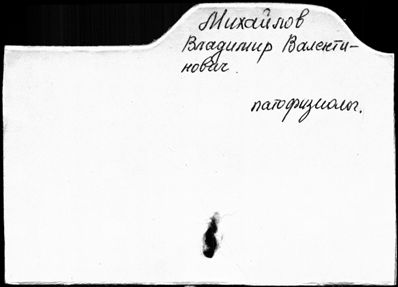 Михайлов
Владимир Валенти-
нович.
патофизиолог.